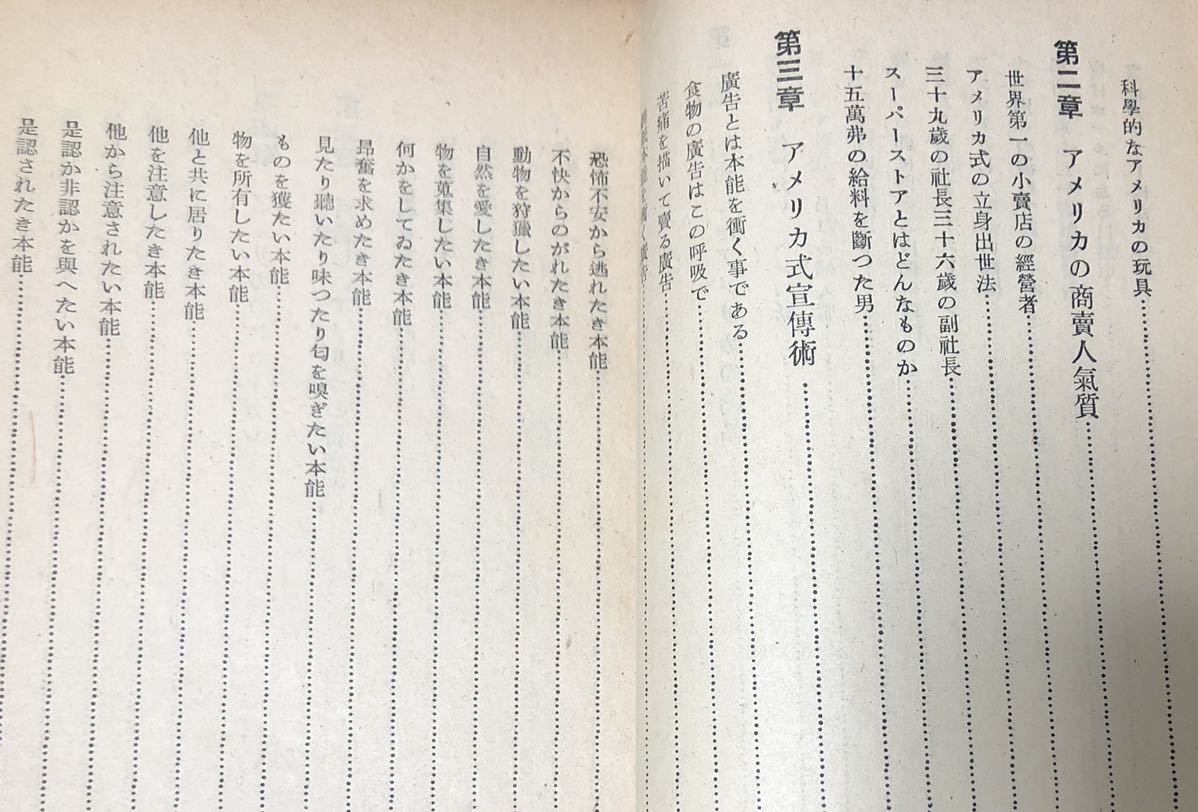 科學的なアメリカの玩具
第二章 アメリカの商賣人氣質
世界第一の小賣店の經營者
アメリカ式の立身出世法
三十九歲の社長三十六歲の副社長
スーパーストアとはどんなものか
十五萬弗の給料を斷つた男
第三章 アメリカ式宣傳術
廣告とは本能を衝く事である
食物の廣告はこの呼吸で
苦痛を描いて賣る廣告
恐怖不安から逃れたき本能
不快からのがれたき本能
動物を狩獵したい本能
自然を愛したき本能
物を蒐集したい本能
何かをしてゐたき本能
昂奮を求めたき本能
見たり聽いたり味つたり匂を嗅ぎたい本能
ものを獲たい本能
物を所有したい本能
他と共に居りたき本能
他を注意したき本能
他から注意されたい本能
是認か非認かを與へたい本能
是認されたき本能